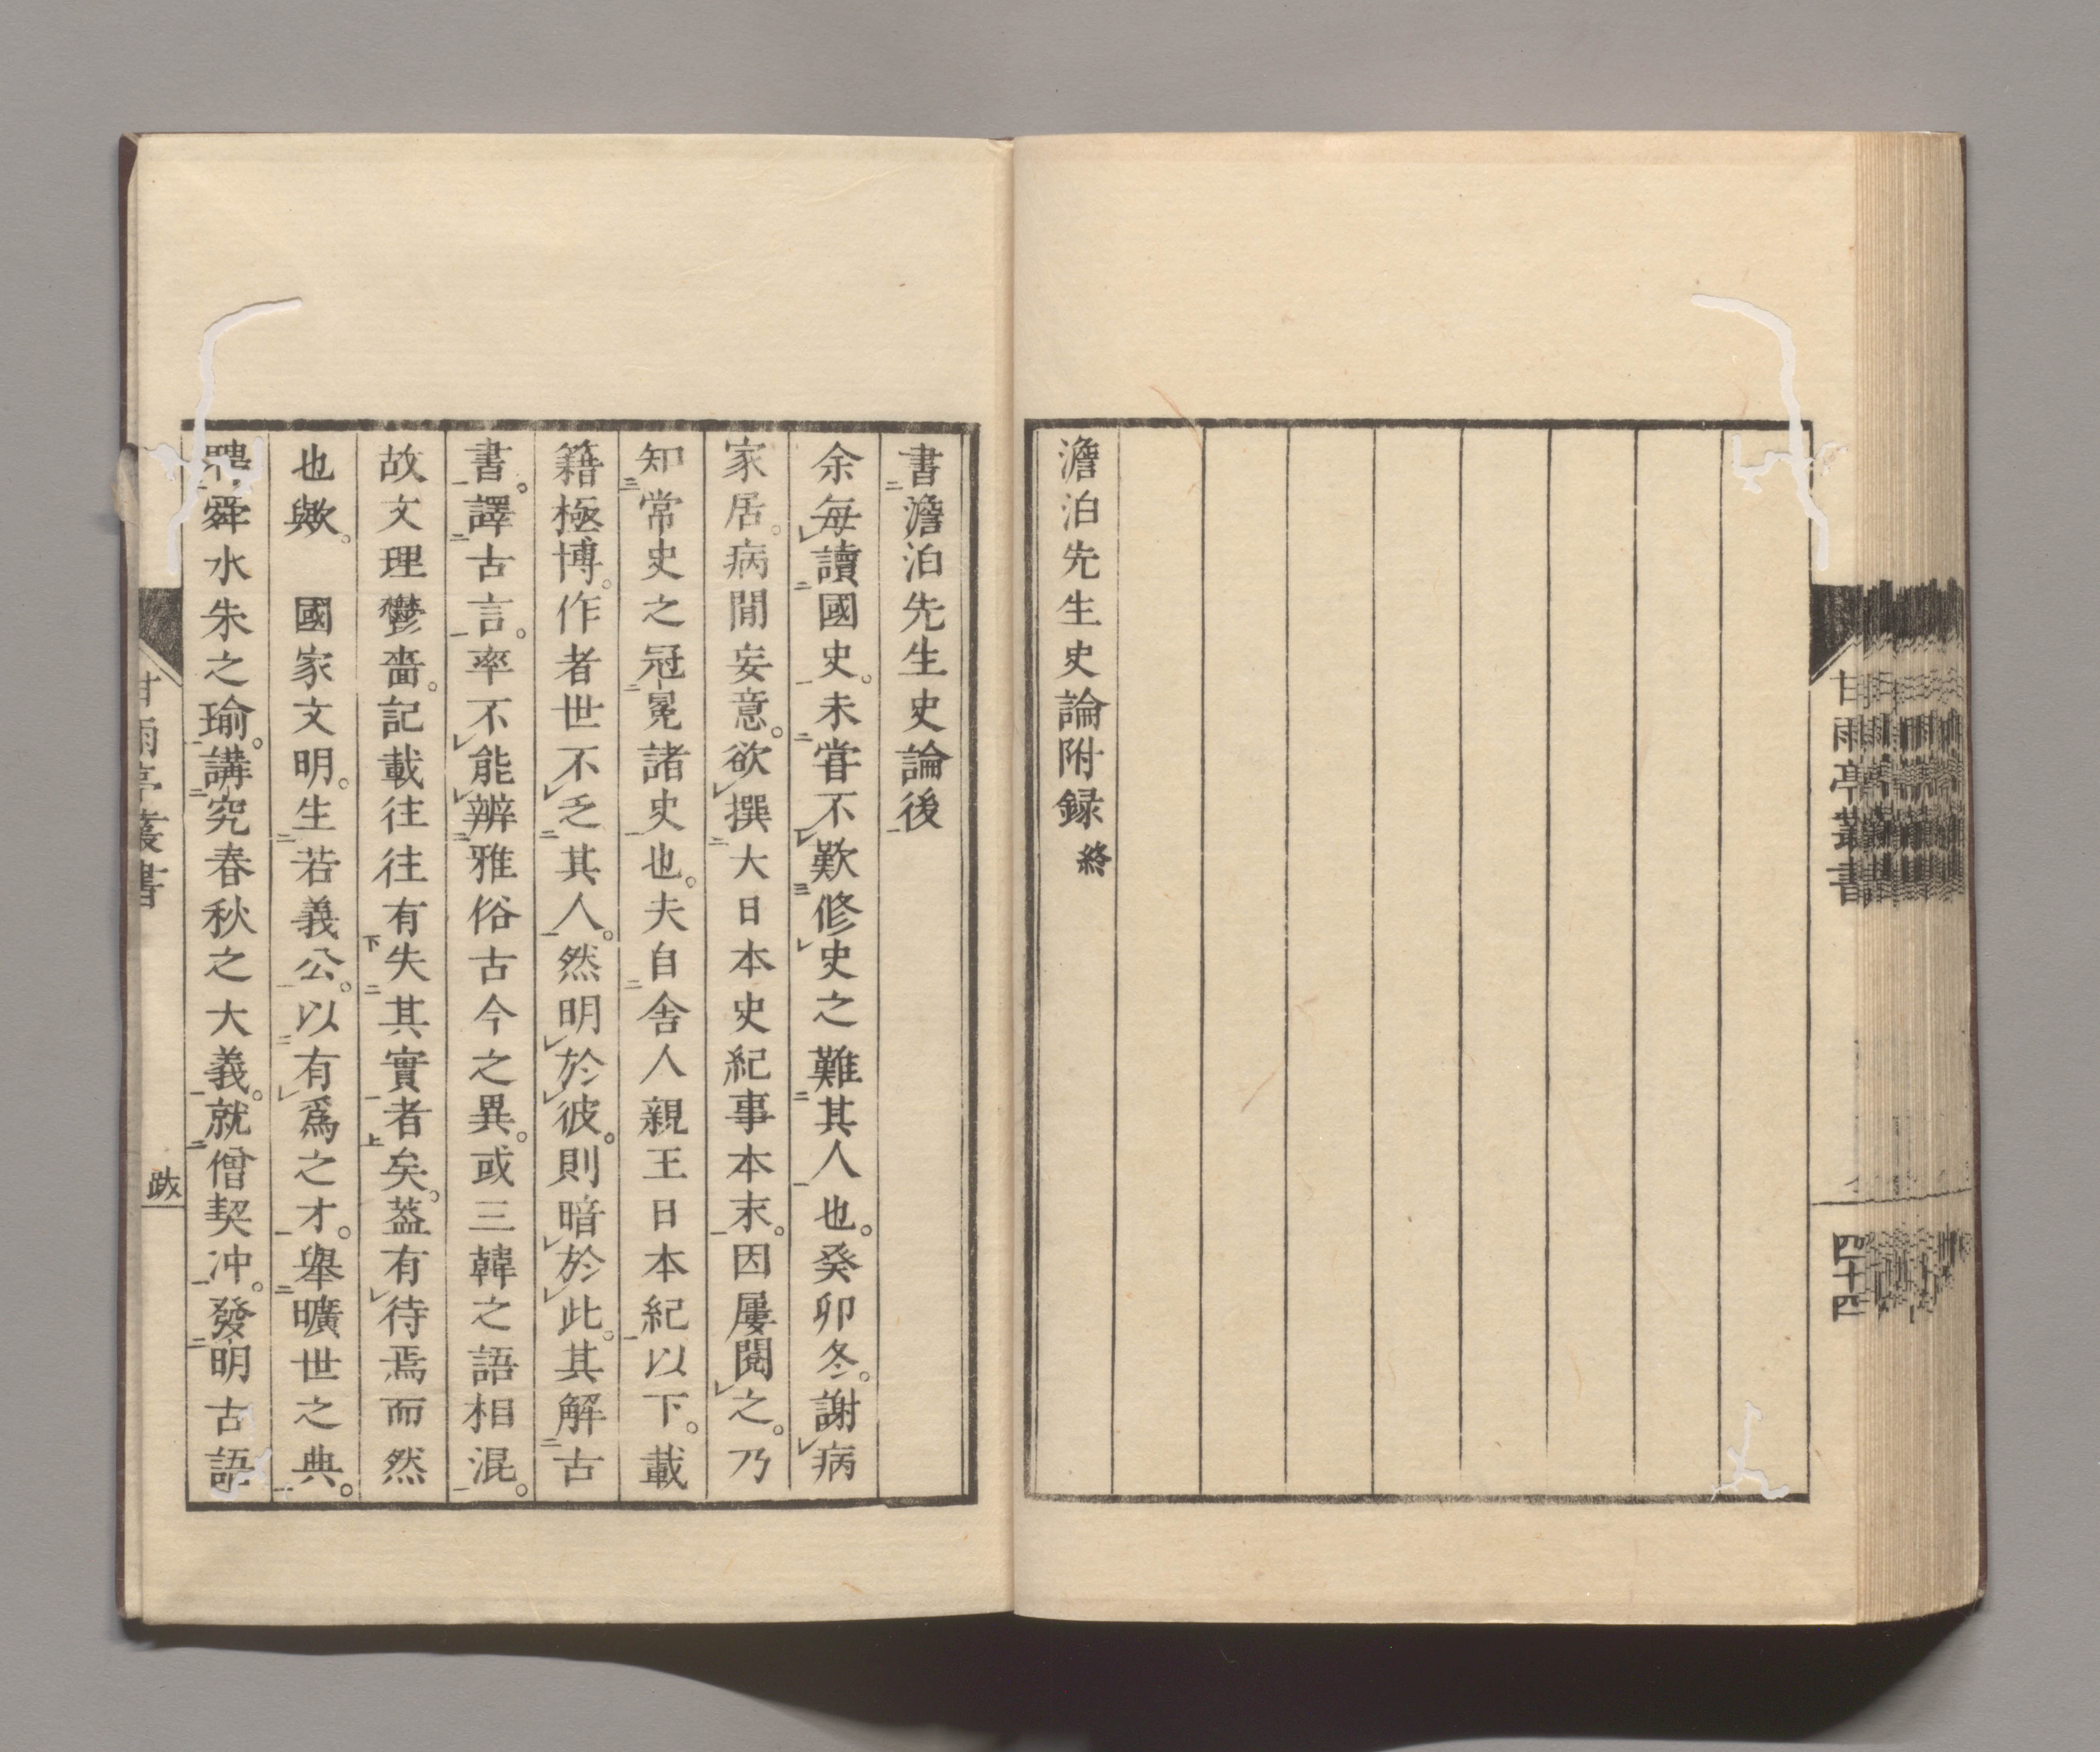 甘雨亭叢書
四十四
澹泊先生史論附録終
書澹泊先生史論後
余每讀國史。未甞不歎修史之難其人也。癸卯冬。謝病
家居。病間妄意。欲撰大日本史紀事本末。因屢閱之。乃
知常史之冠冕諸史也。夫自舍人親王日本紀以下。載
籍極博。作者世不乏其人。然明於彼。則暗於此。其解古
書。譯古言。率不能辨雅俗古今之異。或三韓之語相混。
故文理鬱嗇。記載往往有失其實者矣。葢有待焉而然
也歟。　國家文明。生若義公。以有爲之才。舉曠世之典。
聘舜水朱之瑜。講究春秋之大義。就僧契冲。發明古語
甘雨亭叢書
跋